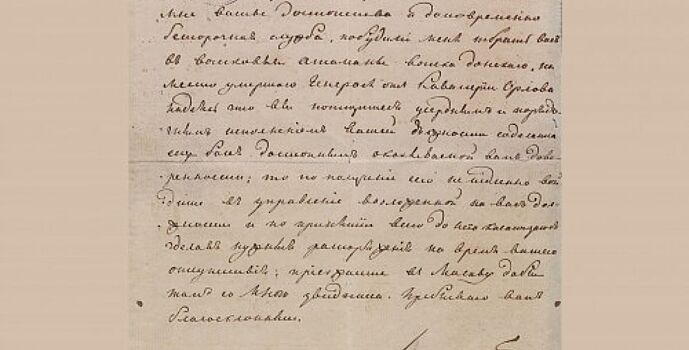 мнѣ ваше достоинства и долговременно
беспорочная служба, побудили меня избрать васъ
въ войсковые атаманы войска донскаго, на
место умершаго Генерала отъ Кавалеріи Орлова
надеясь что вы потщитесь усерднымъ и порядо-
чнымъ исполненіемъ вашей должности соделать
себя болѣ достойнымъ оказываемой вамъ дове-
ренности; то по полученіи сего немедленно вой-
дите въ управленіе возложенной на васъ дол-
жности и по принятіи всего до него касающагося
сделавъ нужные распоряженія на время вашего
отсутствія; приезжайте въ Москву дабы
тамъ со мною увидется. Пребываю вамъ
благосклонны.